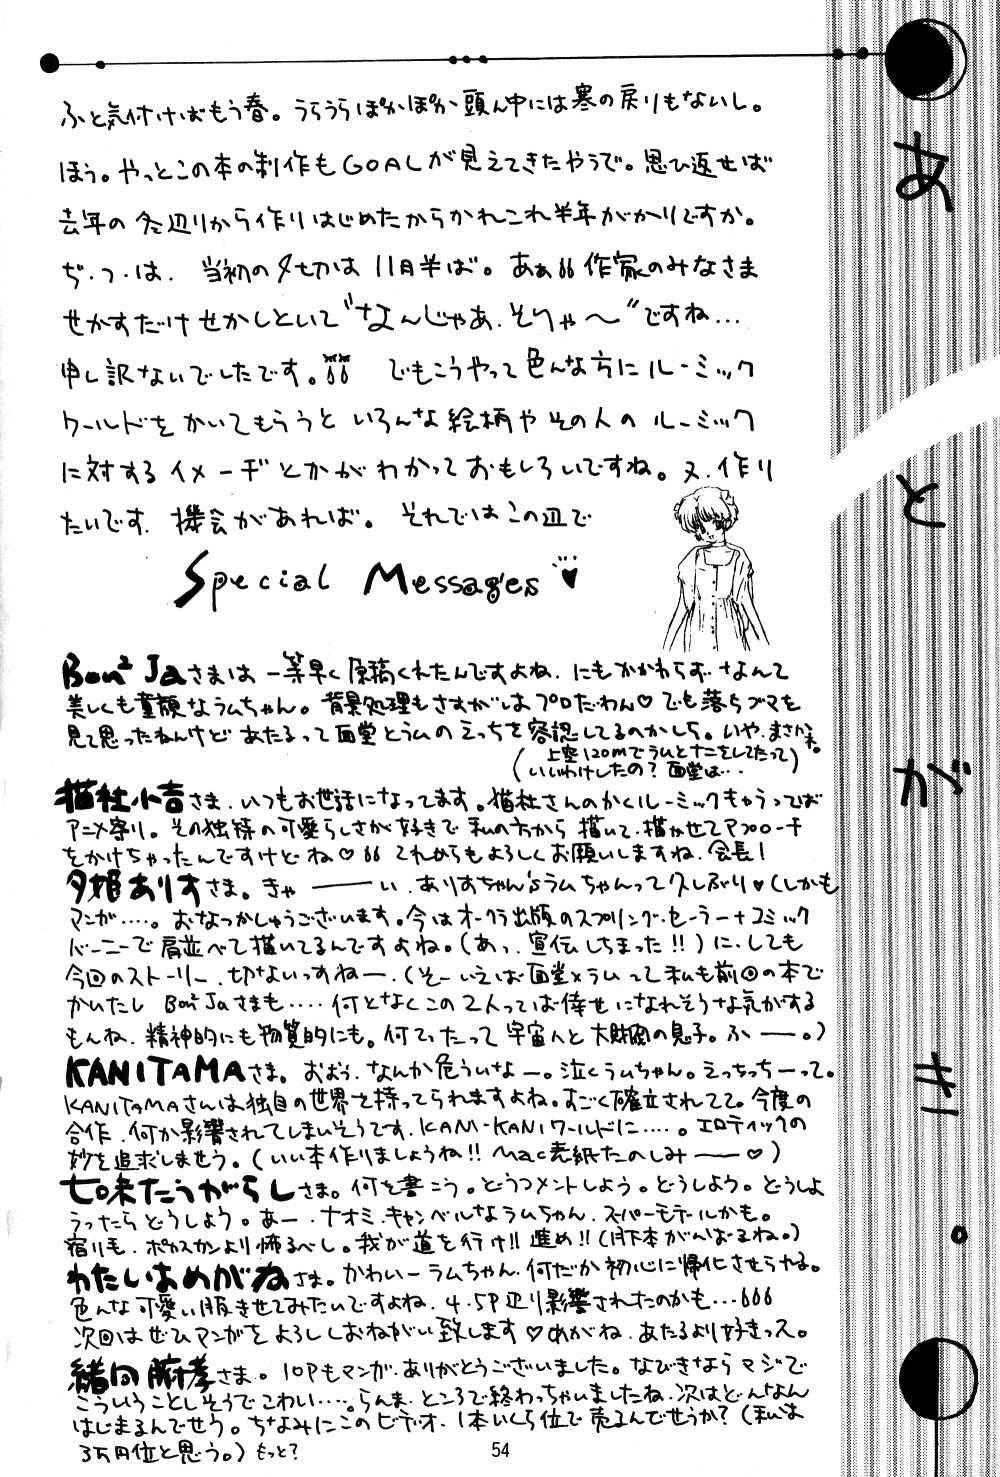 あとがき。
ふと気付けばもう春。うらうらぽかぽか頭ん中には寒の戻りもないし。
ほう。やっとこの本の制作もGOALが見えてきたやうで。思ひ返せば
去年の冬辺りから作りはじめたからかれこれ半年がかりですか。
ぢ・つ・は、当初の〆切は11月半ば。あぁ 作家のみなさま
せかすだけせかしといて"なんじゃあ、そりゃ〜"ですね…
申し訳ないでしたです。 でもこうやって色んな方にルーミック
ワールドをかいてもらうと いろんな絵柄や その人の ルーミック
に対するイメーヂとかがわかっておもしろいですね。又、作り
たいです、機会があれば。それではこの辺で
Special Messages
Bon² Jaさまは 一等早く原稿くれたんですよね、にもかかわらず、なんて
美しくも童顔なラムちゃん。背景処理もさすがはプロだわん♡でも落ちゴマを
見て思ったねんけど あたるって面堂とラムのえっちを容認してるのかしら。いや、まさかネ。
(上空120mでラムとナニをしてたって
いいわけしたの?面堂は‥)
猫杜小吉さま、いつもお世話になってます。猫杜さんのかくルーミックキャラってば
アニメ寄り。その独特の可愛らしさが好きで私の方から 描いて、描かせてアプローチ
をかけちゃったんですけどね♡ これからもよろしくお願いしますね、会長!
夕姫ありすさま。きゃ――い、ありすちゃん'sラムちゃんって久しぶり♥(しかも
マンガ‥‥。おなつかしゅうございます。今はオークラ出版のスプリング・セーラー+コミック
バーニーで肩並べて描いてるんですよね。(あっ、宣伝しちまった!!)に、しても
今回のストーリー、切ないっすねー、(そーいえば面堂×ラムって私も前回の本で
かいたし Bon² Jaさまも‥‥何となくこの2人ってば倖せになれそうな気がする
もんね、精神的にも物質的にも。何てったって宇宙人と大財閥の息子。ふ――。)
KANITAMAさま。おおう、なんか危ういなー。泣くラムちゃん。えっちっちーって。
KANITAMAさんは独自の世界を持ってられますよね。すごく確立されてて。今度の
合作、何か影響されてしまいそうです、KANI-KANIワールドに‥‥。エロティックの
妙を追求しませう。(いい本作りましょうね!! Mac表紙たのしみ――♡)
七味たうがらしさま。何を書こう。どうコメントしよう。どうしよう。どうしよ
うったらどうしよう。あー、ナオミ・キャンベルなラムちゃん、スーパーモデルかも。
宿り毛、ポカスカンより怖るべし。我が道を行け!!進め!!(月下本がんばるね。)
わたしはめがねさま。かわいーラムちゃん、何だか初心に帰化させらるる。
色んな可愛い服きせてみたいですよね、4.5P辺り影響されたのかも…
次回はぜひマンガをよろししおねがい致します♡めがね、あたるより好きっス。
緒向 麻孝さま。10Pもマンガ、ありがとうございました。なびきならマジで
こういうことしそうでこわい‥‥。らんま、ところで終わっちゃいましたね、次はどんなん
はじまるんでせう。ちなみにこのビデオ、1本いくら位で売るんでせうか?(私は
3万円位と思う。)もっと?
54